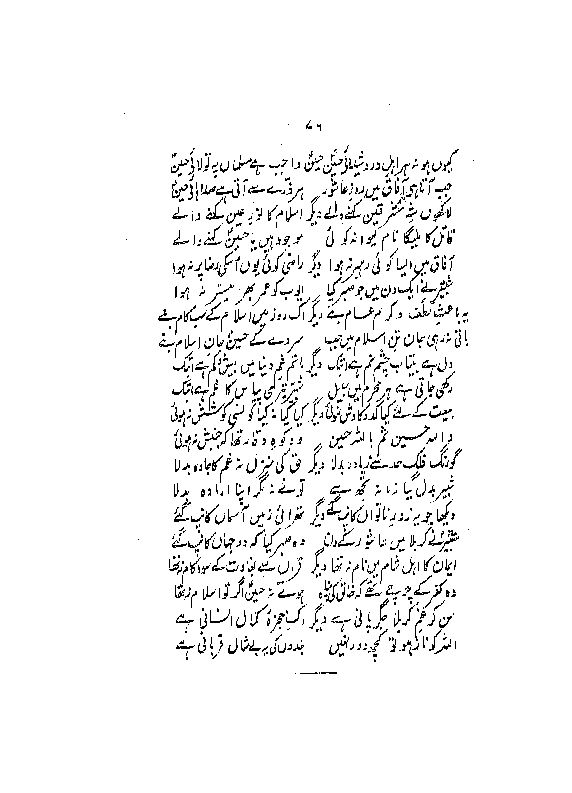 ۷۶
کیوں ہو نہ ہر اہل درد شیدائے حسینؑ واجب ہے مسلماں پہ تولائے حسینؑ
جب آتا ہے آفاق میں روز عاشور ہر ذرے سے آتی ہے صدا ہائے حسینؑ
لاکھوں شہ کہنے والے دیگر اسلام کا نور عین کہنے والے
قاتل کا ملیگا نام لیوا نہ کوئی موجود ہیں یا حسینؑ کہنے والے
آفاق میں ایسا کوئی رہبر نہ ہوا دیگر راضی کوئی یوں اسکی رضا پر نہ ہوا
شبیرؑ نے ایک دن میں جو صبر کیا ایوب کو عمر بھر میسر نہ ہوا
یہ باعث لطف و کرم عام بنے دیگر اک روز میں اسلام کے سب کام بنے
باقی نہ رہی جان تن اسلام میں جب سر دے کے حسینؑ جان اسلام بنے
دل ہے بیتاب چشم نم ہے اب تک دیگر ماتم غم دنیا میں بیش و کم ہے اب تک
رکھی جاتی ہے ہر محرم میں سبیل شبیرؑ تری پیاس کا غم ہے اب تک
بیعت کے لئے کیا کد و کاوش نہ ہوئی دیگر کیا کیا نہ کیا کونسی کوشش نہ ہوئی
واللہ حسین ثم باللہ حسین وہ کوہ وقار تھا کہ جنبش نہ ہوئی
گو رنگ فلک حد سے زیادہ بدلا دیگر حق کی منزل نہ غم کا جادہ بدلا
شبیر بدل گیا زمانہ تجھ سے تو نے نہ مگر اپنا ارادہ بدلا
دیکھا جو یہ زور ناتواں کانپ گئے دیگر تھرائی زمیں آسماں کانپ گئے
شبیرؑ نے کربلا میں عاشور کے دن وہ صبر کیا کہ دو جہاں کانپ گئے
ایمان کا اہل شام میں نام نہ تھا دیگر قرآں سے بغاوت کے سوا کام نہ تھا
وہ کفر کے چرچے تھے کہ خالق کی پناہ ہوتے نہ حسینؑ اگر تو اسلام نہ تھا
سن کر غم کربلا جگر پانی ہے دیگر اک معجزہ کمال انسانی ہے
اللہ کو ناز ہو تو کچھ دور نہیں بندوں کی یہ بے مثال قربانی ہے